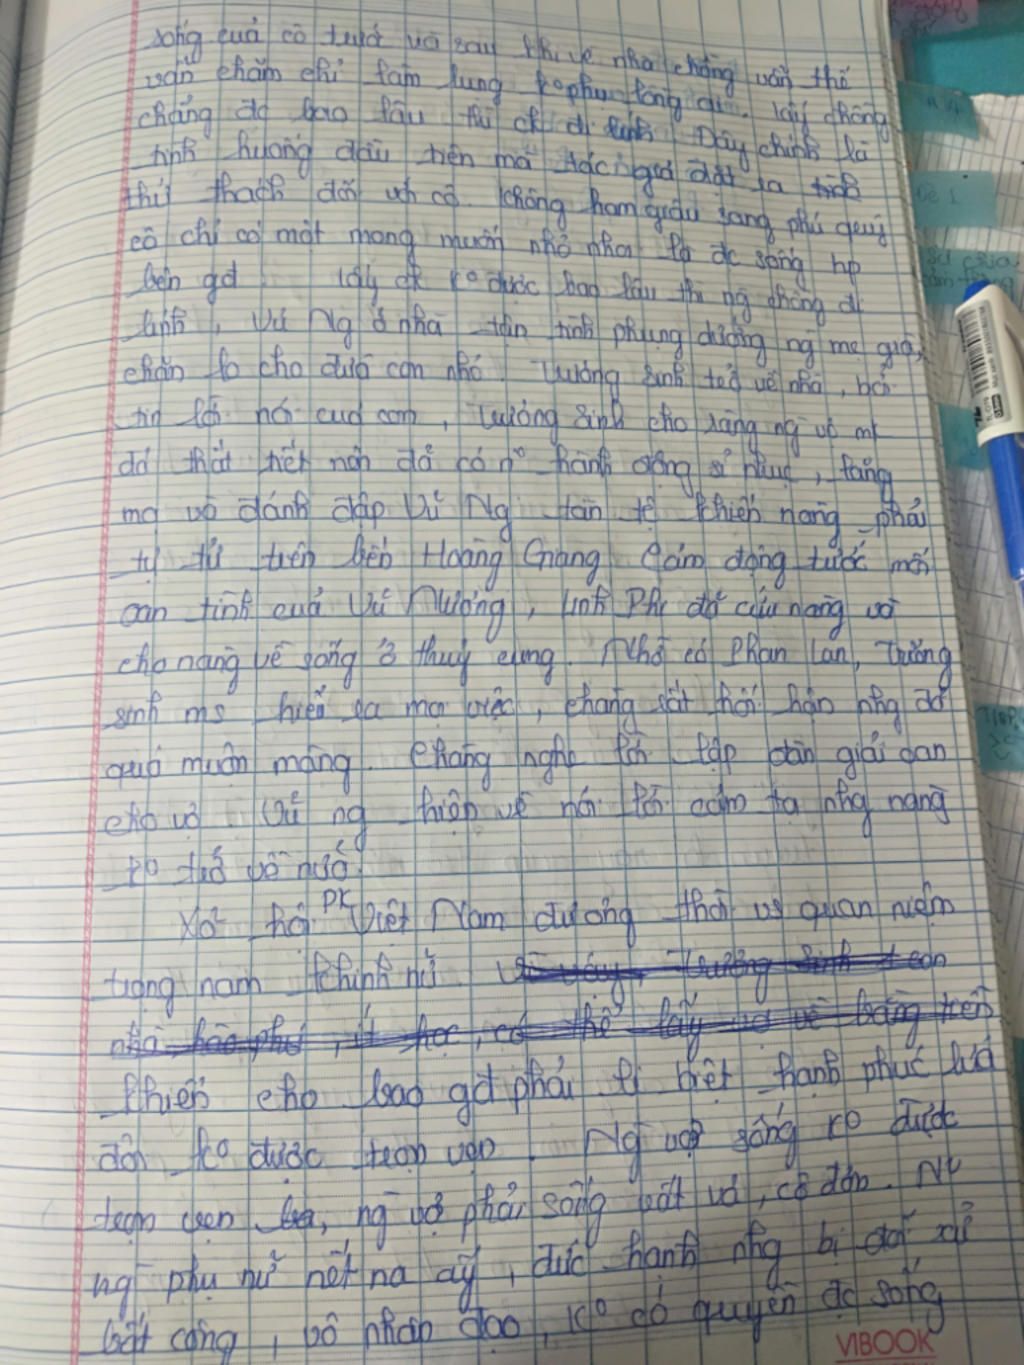 sống của cô trước và sau khi về nhà chồng vẫn thế
vẫn chăm chỉ làm lụng ko phụ lòng ai. lấy chồng
chẳng đc bao lâu thì ck đi lính. Đây chính là
tình huống đầu tiên mà tác giả đặt ra
thử thách đối với cô. không ham giàu sang phú quý
cô chỉ có một mong muốn nhỏ nhoi là đc sống hp
bên gđ lấy ck ko được bao lâu thì ng chồng đi
lính, Vũ Ng ở nhà tận tình phụng dưỡng ng mẹ già,
chăm lo cho đứa con nhỏ. Trương Sinh trở về nhà, bởi
tin lời nói của con, Trương Sinh cho rằng ng vợ mk
đã thất tiết nên đã có n~ hành động sỉ nhục, mắng
mỏ và đánh đập Vũ Ng tàn tệ khiến nàng phải
tự tử trên bến Hoàng Giang. Cảm động trước mối
oan tình của Vũ Nương, Linh Phi đã cứu nàng và
cho nàng về sống ở thuỷ cung. Nhờ có Phan Lan, Trương
Sinh ms hiểu ra mọi việc, chàng rất hối hận nhg đã
quá muộn màng. Chàng nghe lời lập đàn giải oan
cho vợ. Vũ ng hiện về nói lời cảm tạ nhg nàng
ko trở về nữa.
Xã hội PK Việt Nam đương thời vs quan niệm
trọng nam khinh nữ
khiến cho bao gđ phải li biệt hạnh phúc lứa
đôi ko được trọn vẹn. Ng vợ sống ko được
trọn vẹn, ng vợ phải sống vất vả, cô đơn. N~
ng phụ nữ nết na ấy, đức hạnh nhg bị đối xử
bất công, vô nhân đạo, ko có quyền đc sống
VIBOOK